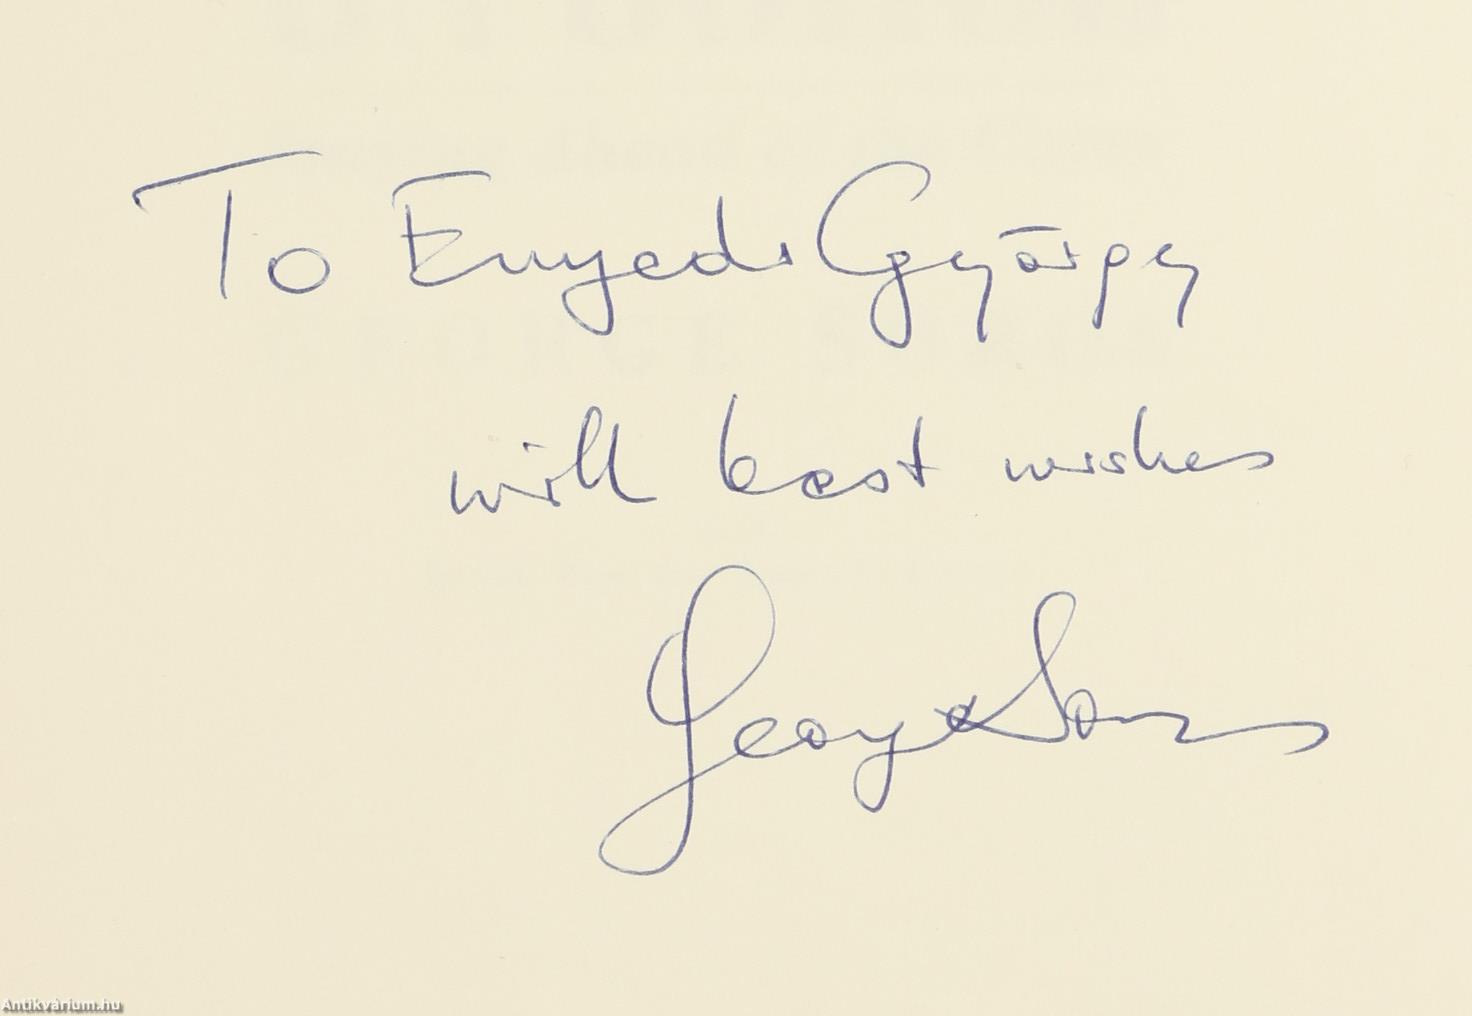 To Enyedi György
with best wishes
George Soros
Antikvárium.hu